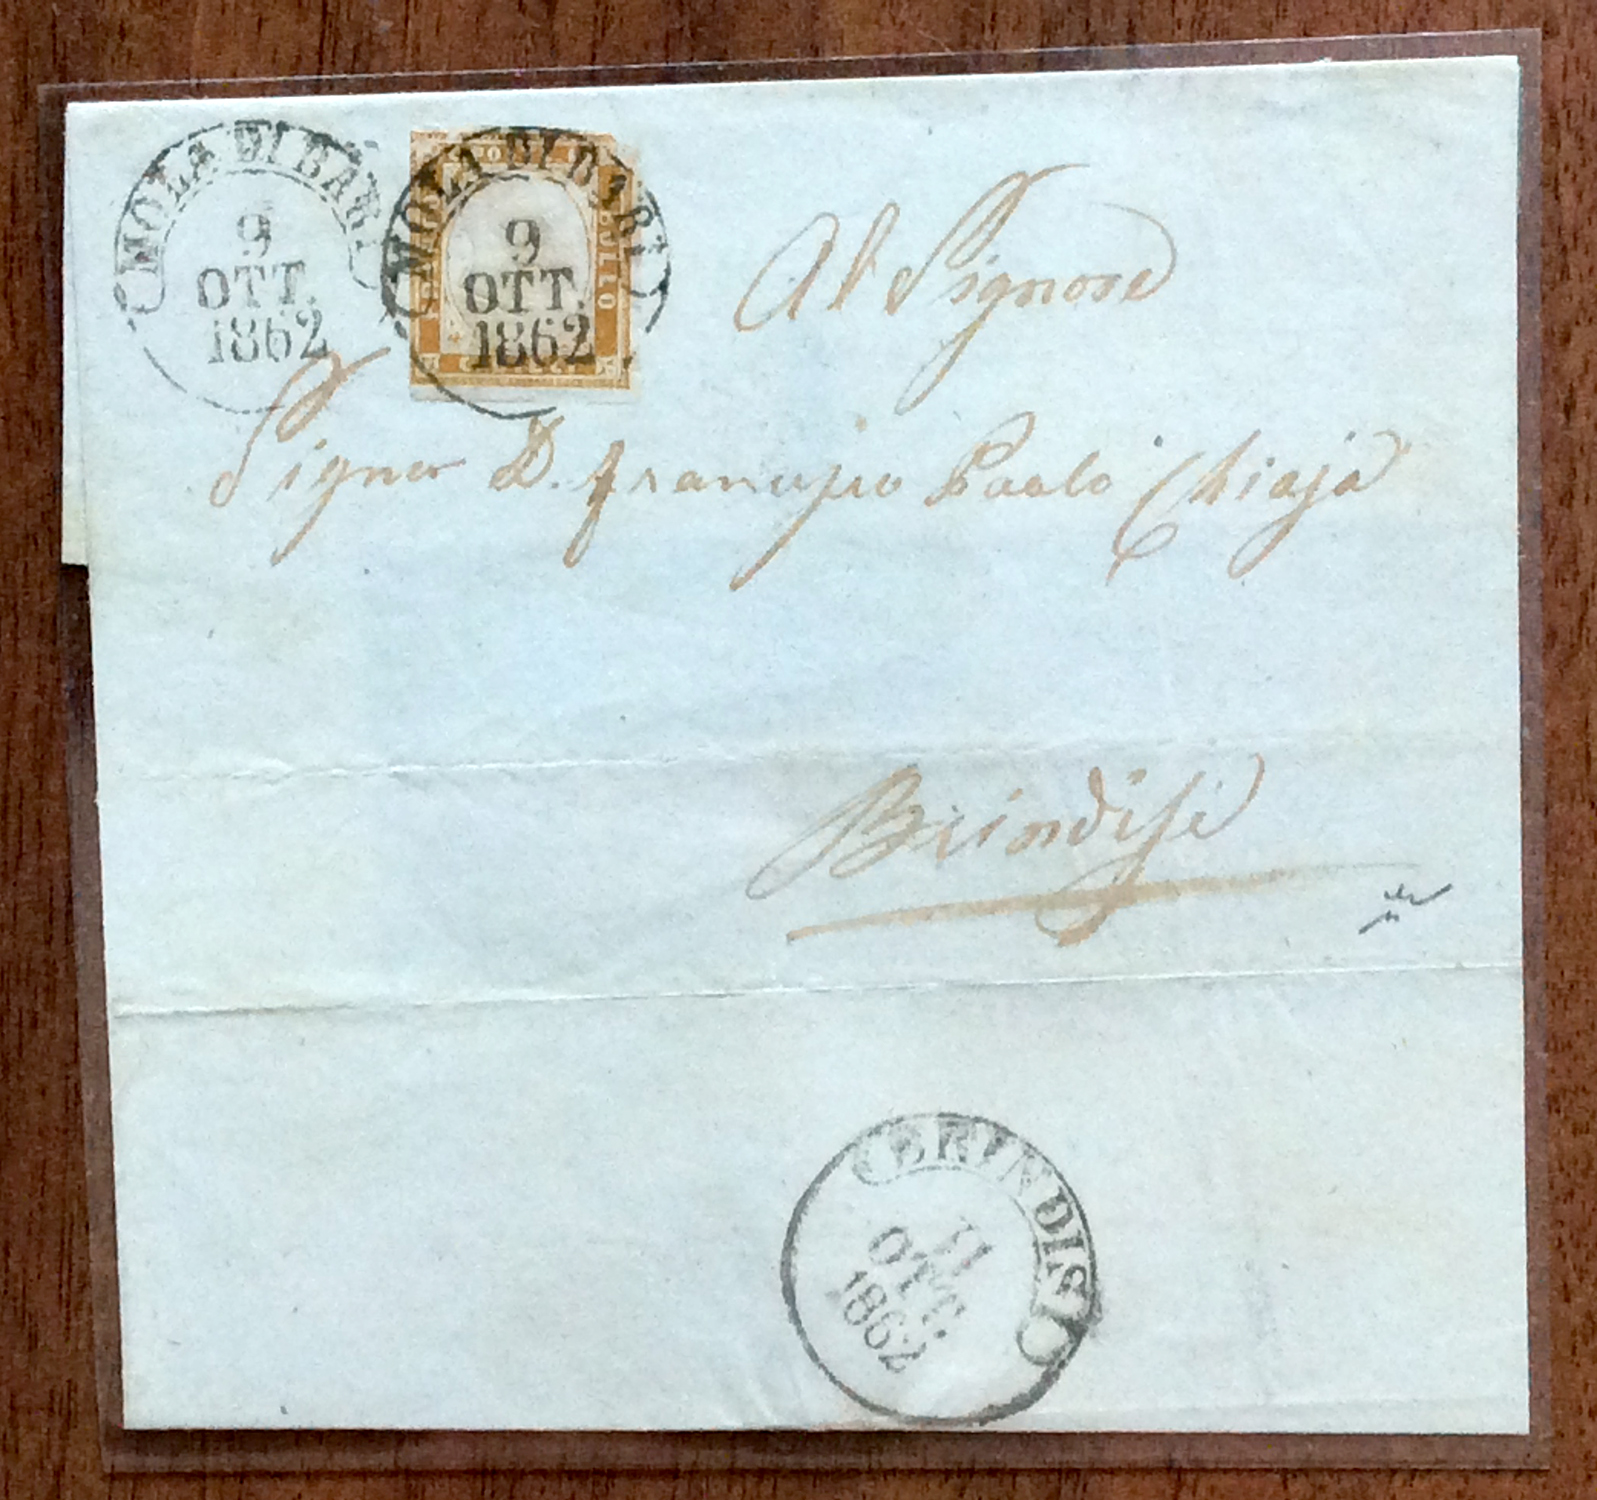 MOLA DI BARI
9
OTT.
1862
MOLA DI BARI
9
OTT.
1862
BOLLO
Al Signore
Signor D. Francesco Paolo Chiaja
Brindisi
BRINDISI
11
OTT.
1862